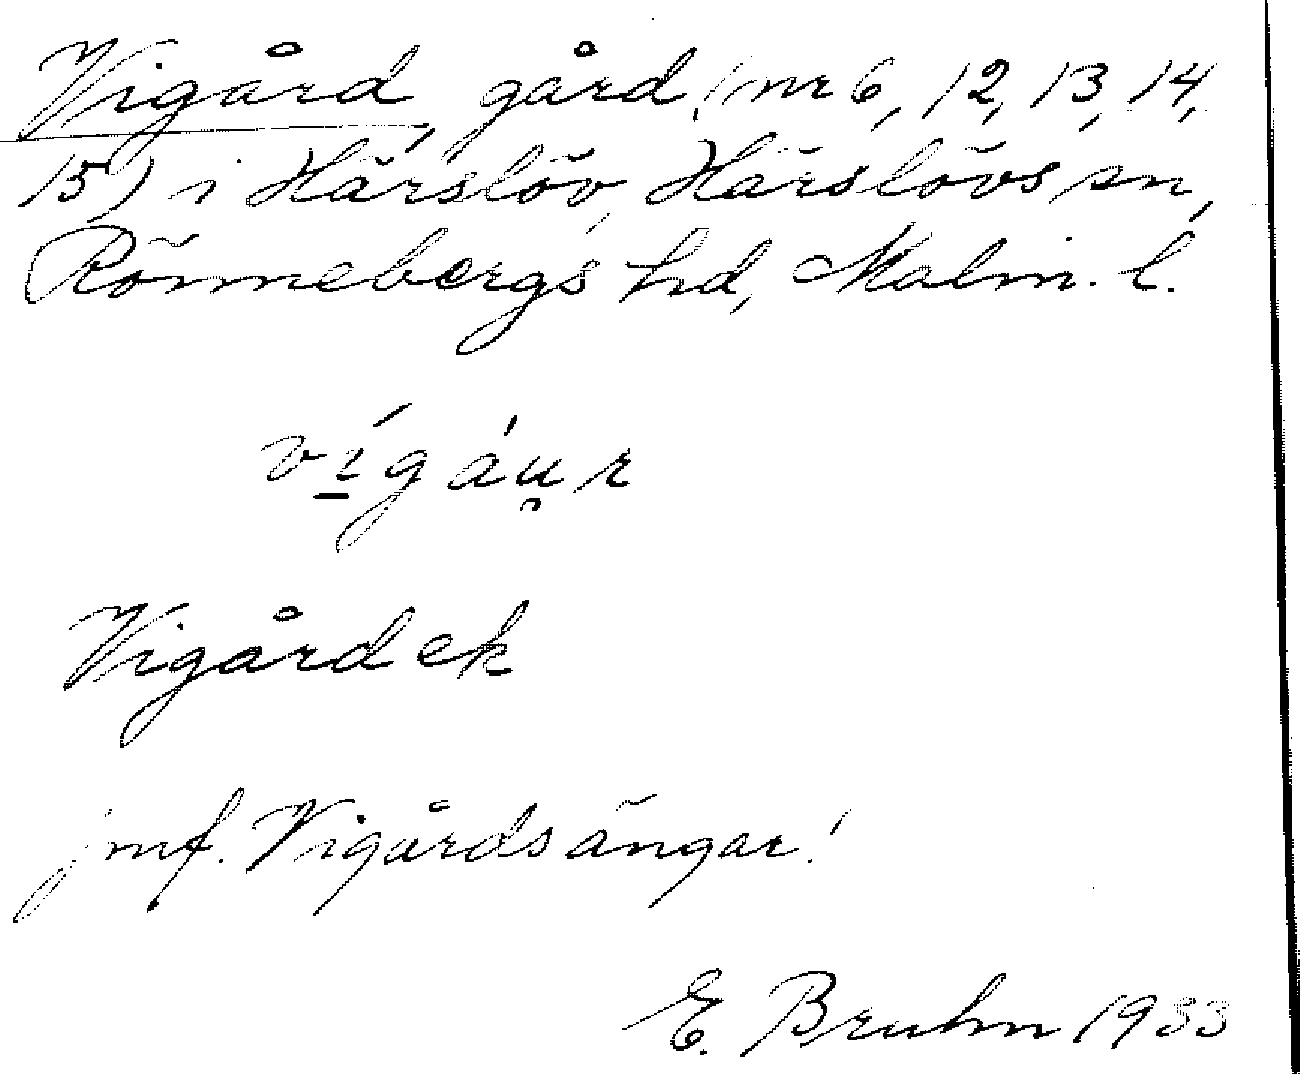 Vigård, gård (nr 6, 12, 13, 14,
15) i Härslöv, Härslövs sn,
Rönnebergs hd, Malm. l.
vígáu̯r
Vigård ek
jmf. Vigårdsängar!
E. Bruhn 1933